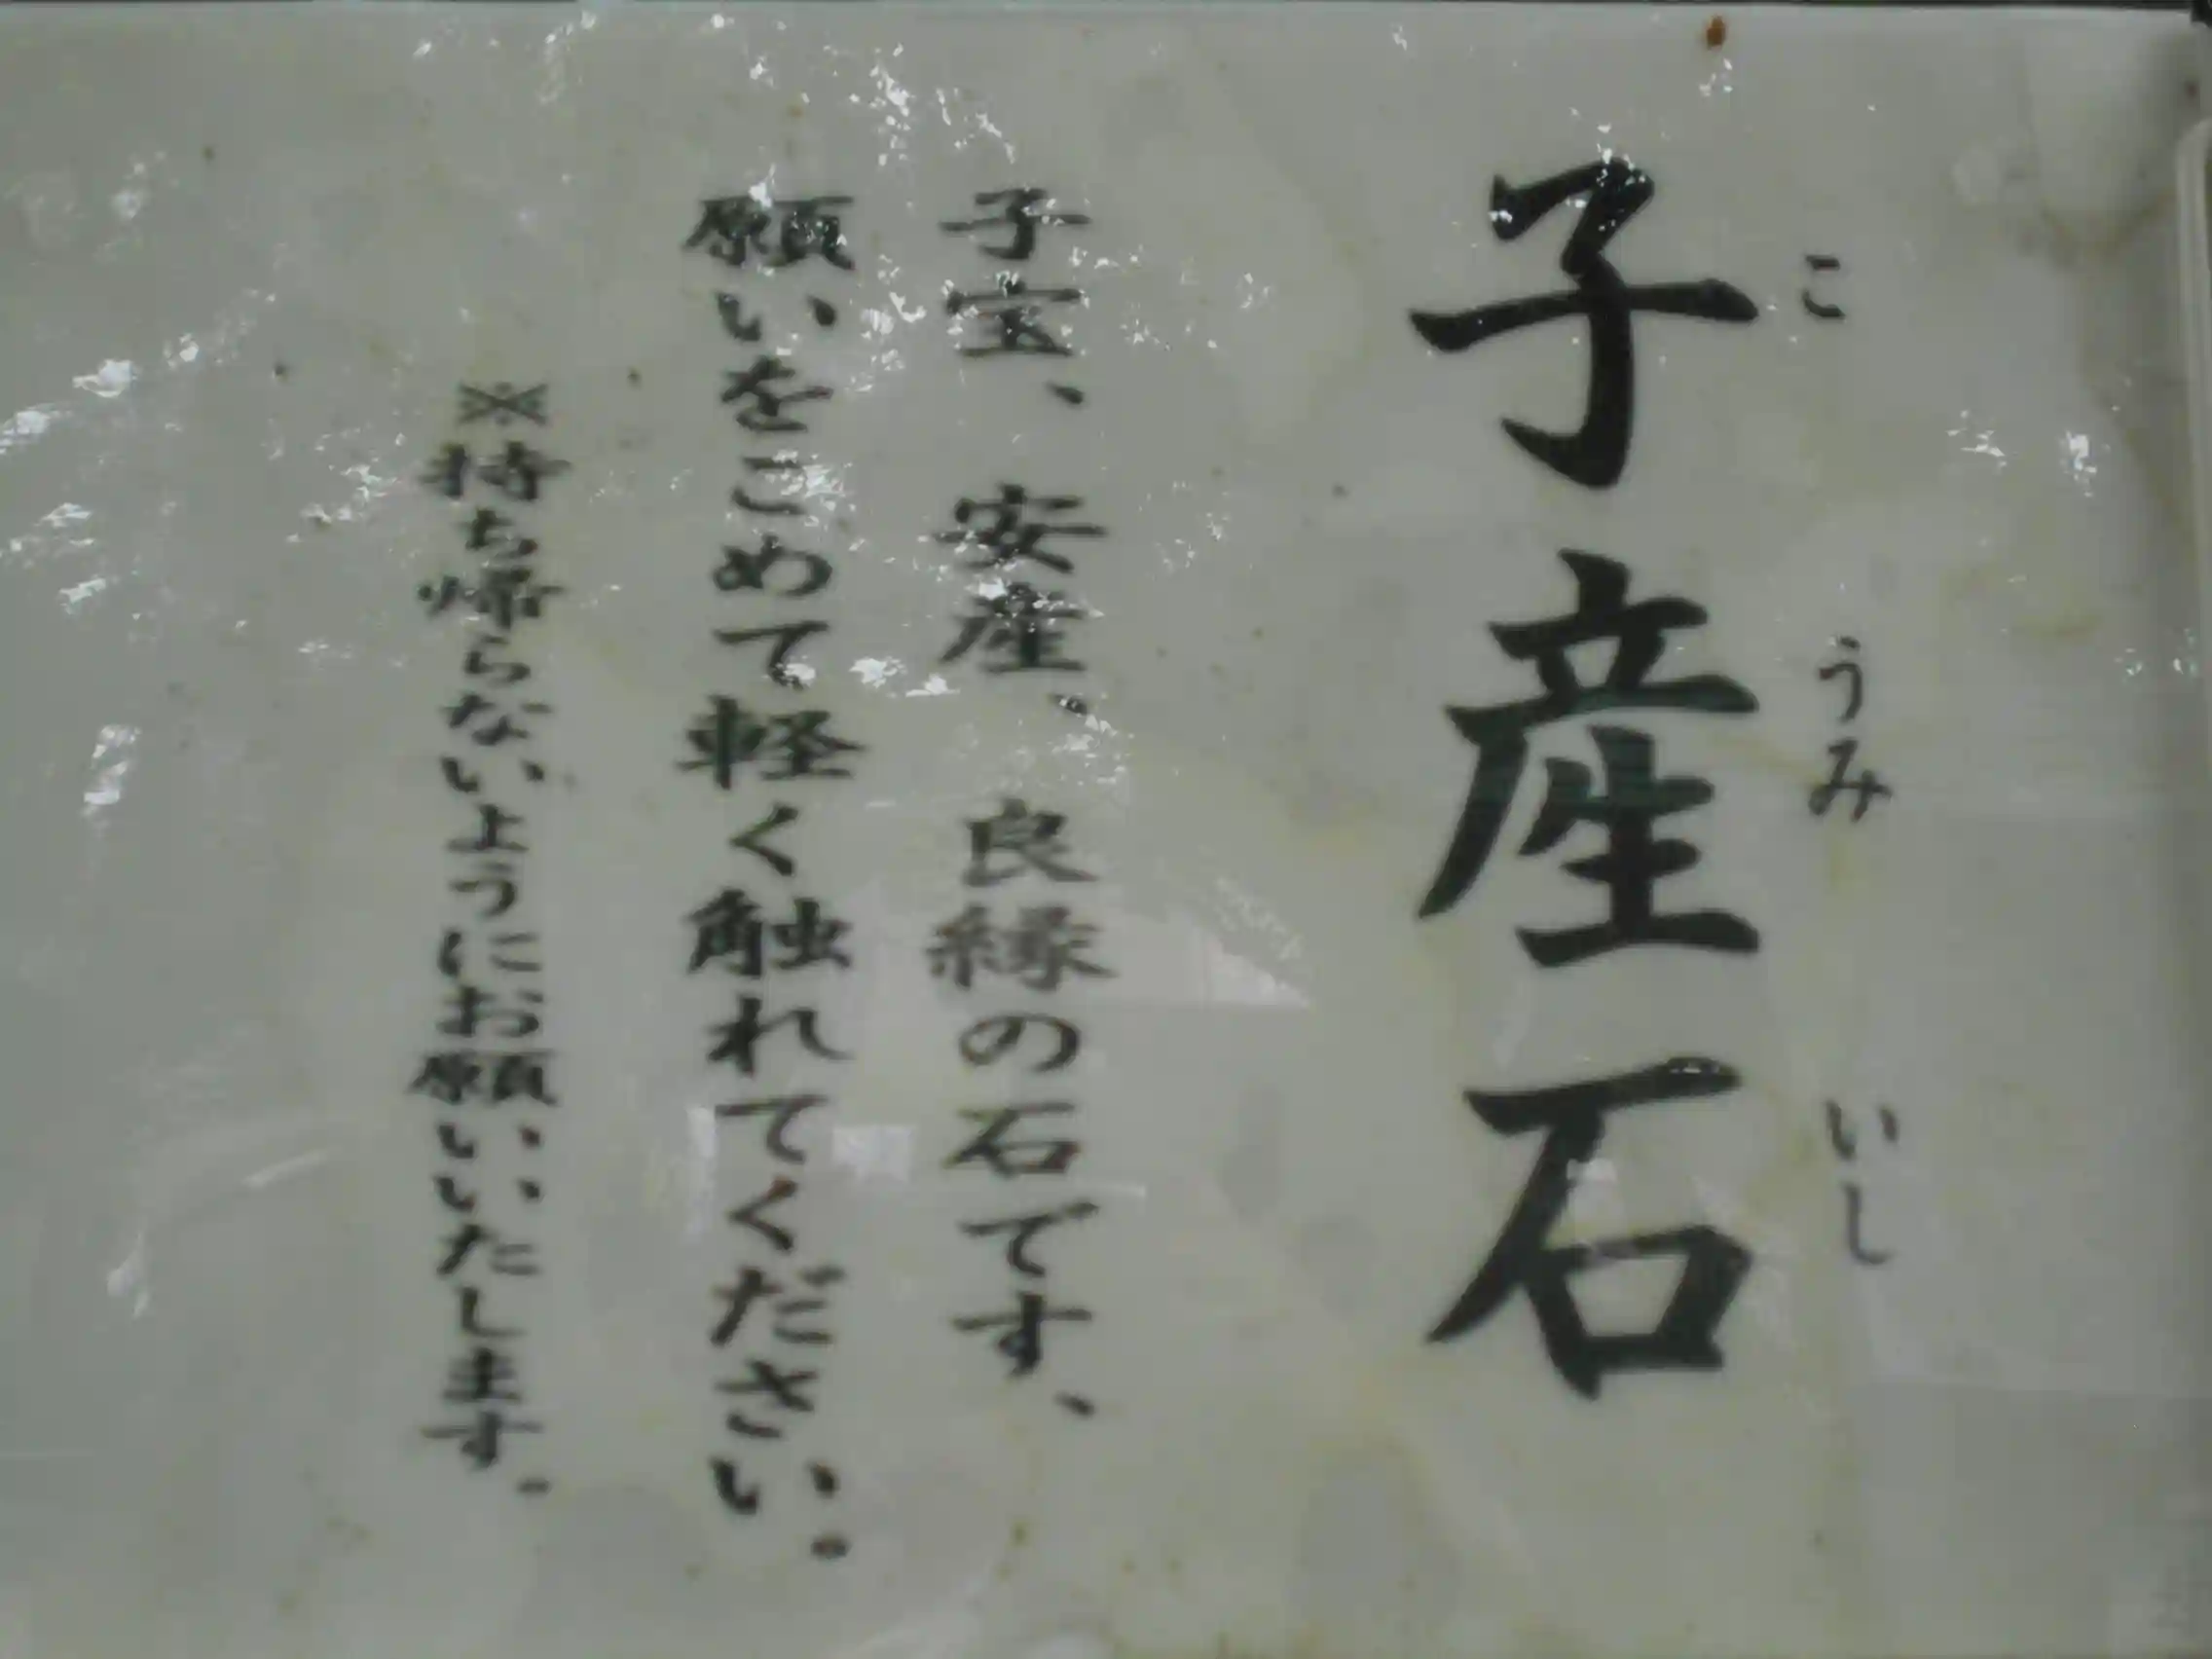 こ うみ いし
子産石
子宝、安産、良縁の石です、
願いをこめて軽く触れてください。
※持ち帰らないようにお願いいたします。